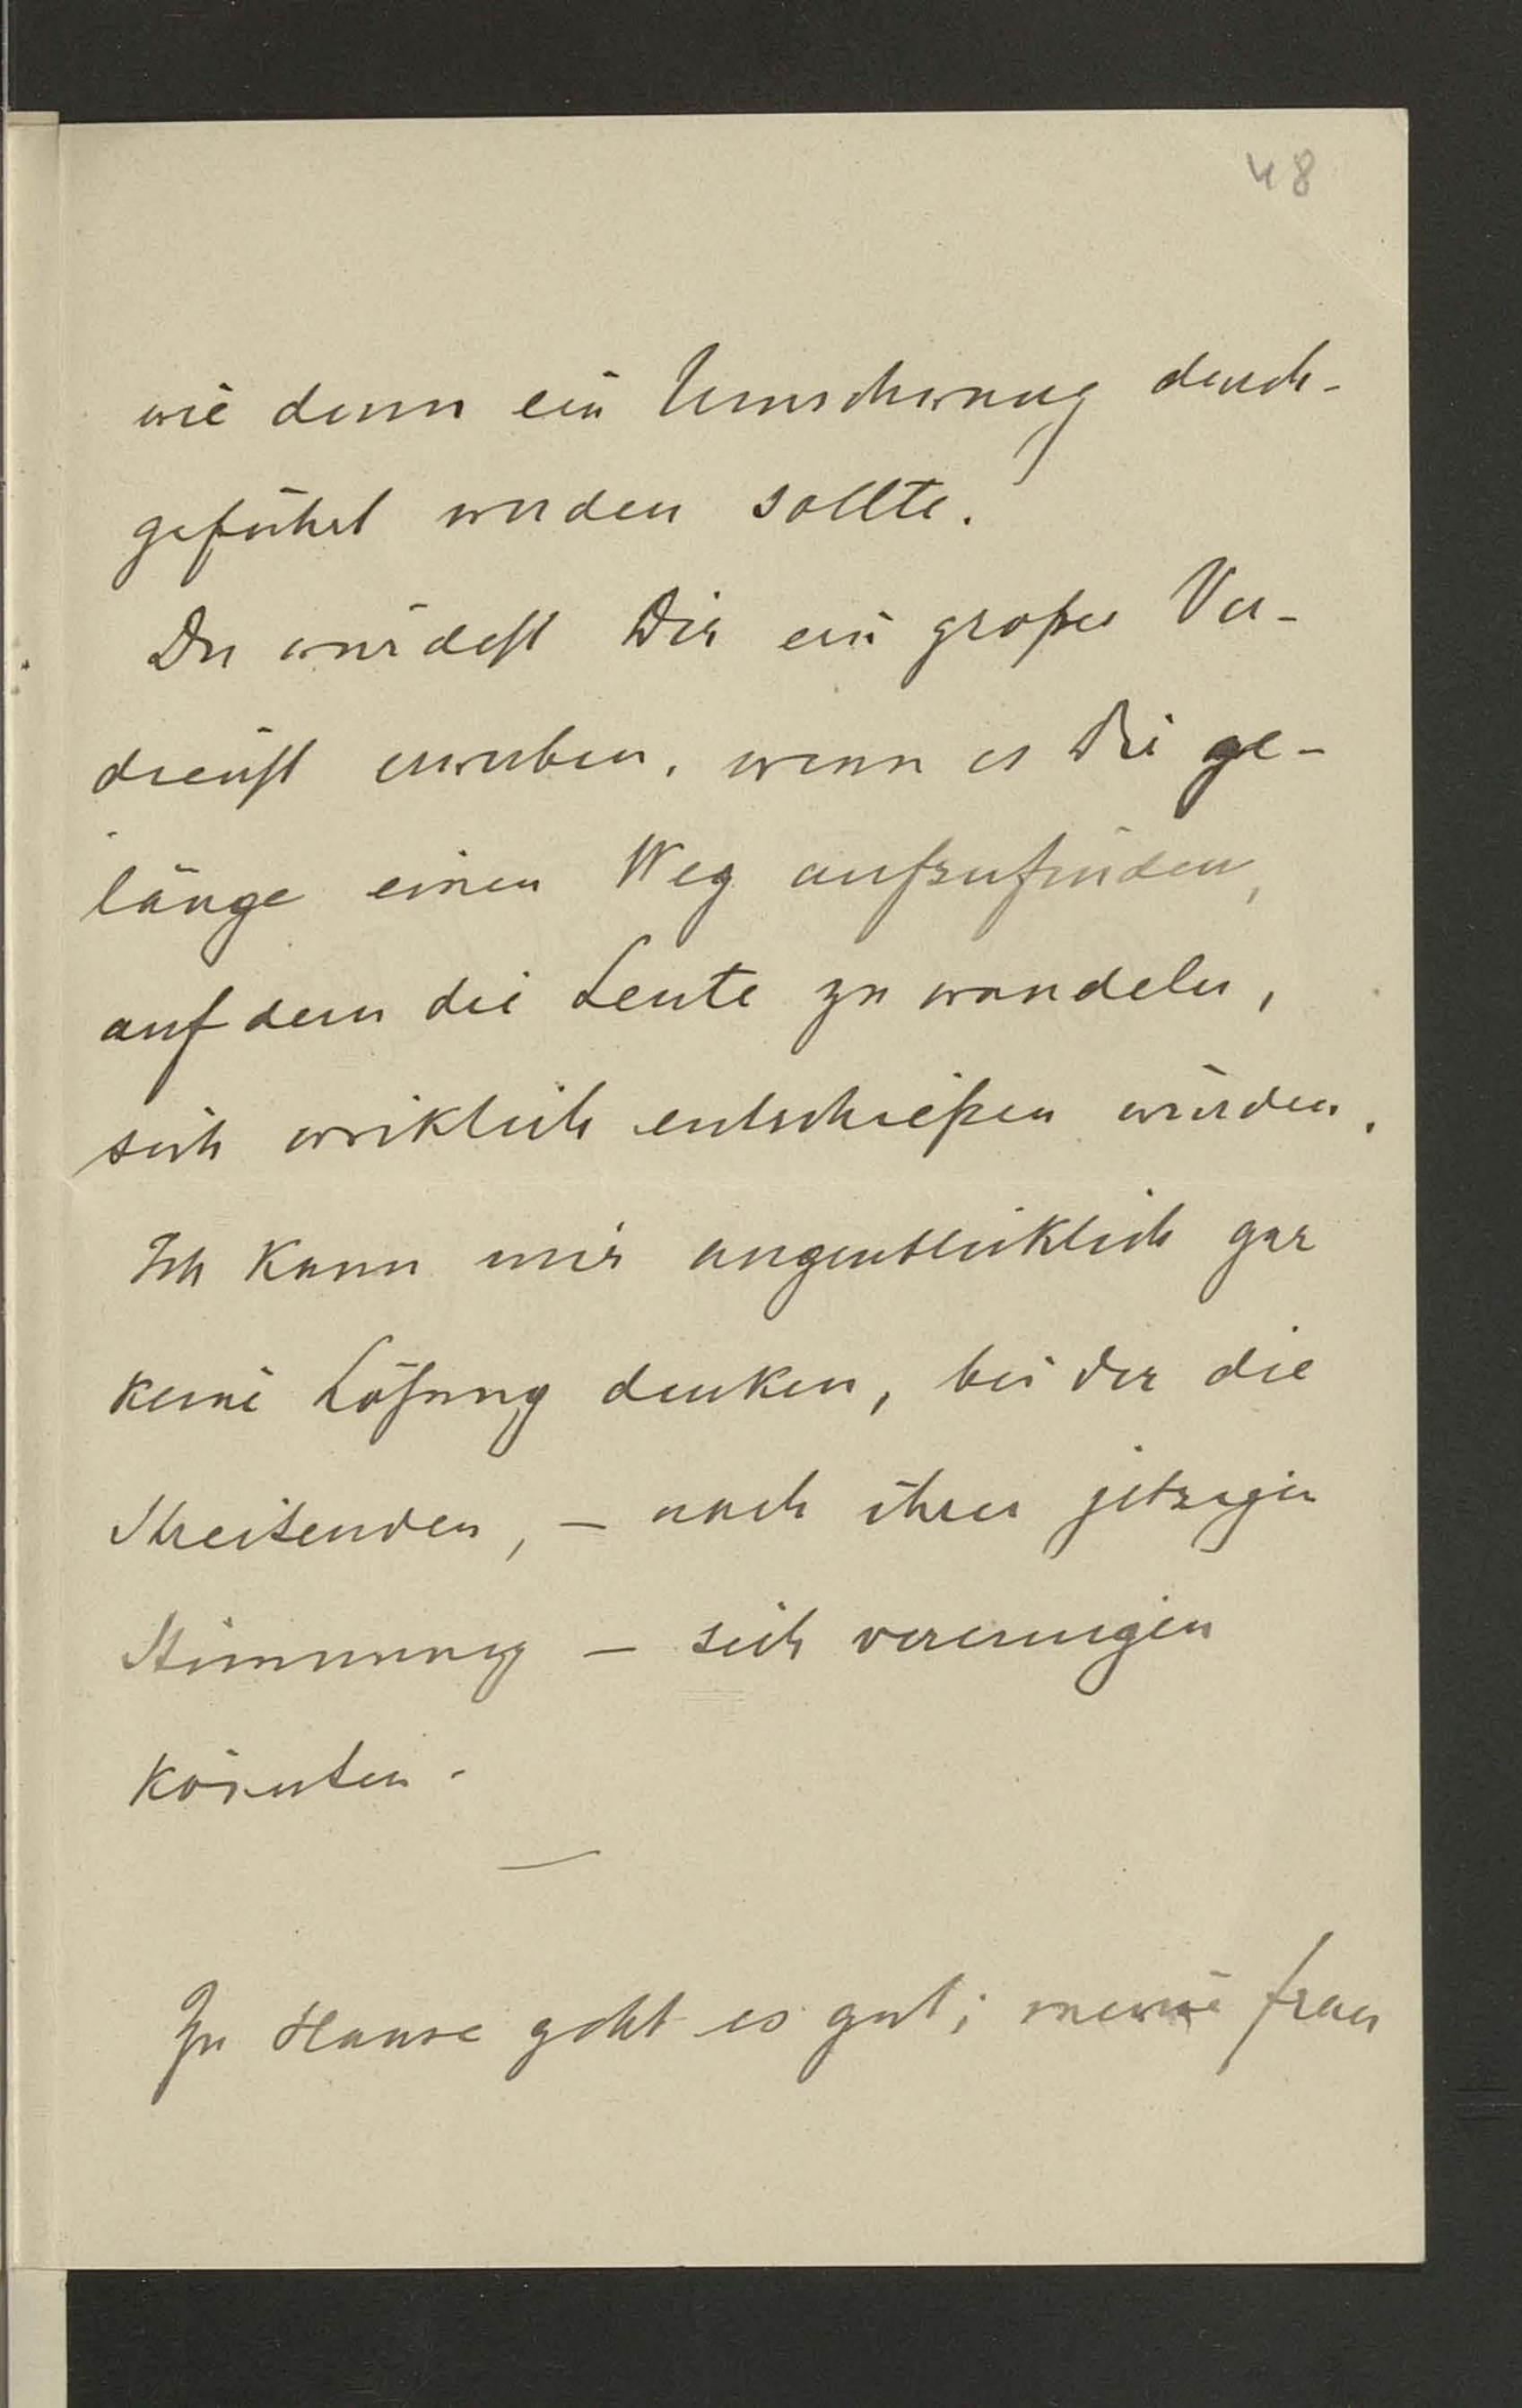 48
wie denn ein Umschwung durch-
geführt werden sollte.
Du würdest Dir ein großes Ver-
dienst erwerben, wenn es Dir ge-
länge einen Weg aufzufinden,
auf dem die Leute zu wandeln,
sich wirklich entschließen würden.
Ich kann mir augenblicklich gar
keine Lösung denken, bei der die
Streitenden, – nach ihrer jetzigen
Stimmung – sich vereinigen
könnten.
Zu Hause geht es gut; meine Frau